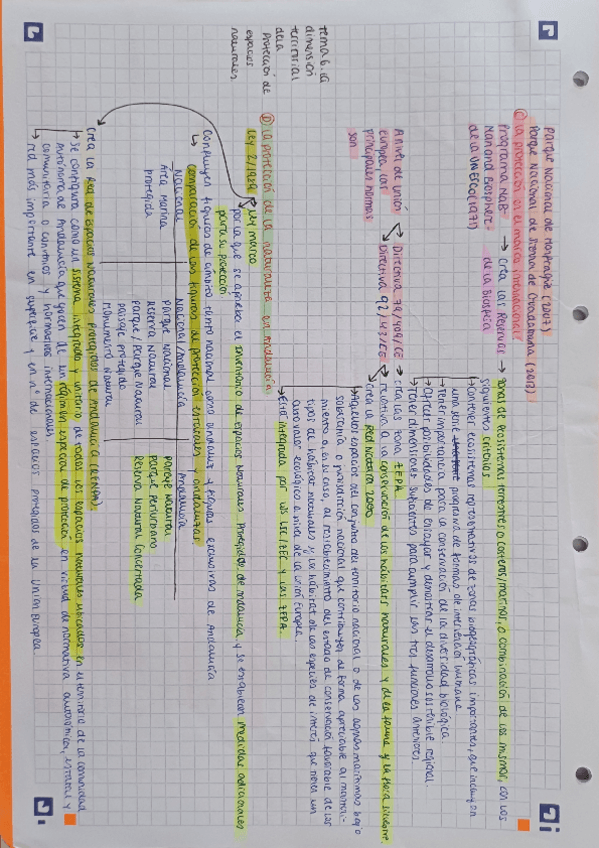 Parque Nacional de Monfragüe (2007)
Parque Nacional de Sierra de Guadarrama (2013)
C) La protección en el marco internacional:
Programa MaB → Crea las Reservas → zonas de ecosistemas terrestres o costeros/marinos, o combinación de los mismos, con los
Man and Biosphere de la Biosfera siguientes criterios
de la UNESCO (1971)
→ Contener ecosistemas representativos de zonas biogeográficas importantes, que incluyan
una serie progresiva de formas de intervención humana
→ Tener importancia para la conservación de la diversidad biológica
→ Ofrecer posibilidades de ensayar y demostrar el desarrollo sostenible regional
→ Tener dimensiones suficientes para cumplir las tres funciones anteriores.
A nivel de unión → Directiva 79/409/CE → crea las zona ZEPA
europea, las → Directiva 92/43/CE → relativa a la conservación de los hábitats naturales y de la fauna y la flora silvestre.
principales normas
son
crea la Red Natura 2000
→ Aquellos espacios del conjunto del territorio nacional o de las aguas marítimas bajo
soberanía o jurisdicción nacional que contribuyen de forma apreciable al manteni-
miento o, en su caso, al restablecimiento del estado de conservación favorable de los
tipos de hábitat naturales y los hábitat de las especies de interés que tienen un
alto valor ecológico a nivel de la Unión Europea.
→ Está integrada por los LIC/ZEC y las ZEPA.
tema 6. la
dimensión
territorial
de la
Protección de
espacios
naturales
D) La protección de la naturaleza en Andalucía
Ley 2/1989 → ley marco
por la que se aprueba el inventario de espacios Naturales Protegidos de Andalucía y se establecen medidas adicionales
para su protección
Confluyen figuras de ámbito tanto nacional como andaluz y figuras exclusivas de Andalucía
→ Comparación de las figuras de protección estatales y andaluzas.
Nacional Nacional/Andalucía Andalucía
Área Marina Parque Nacional Paraje Natural
Protegida Reserva Natural Parque Periurbano
Parque/Parque Natural Reserva Natural Concertada
Paisaje protegido
Monumento Natural
Crea la Red de espacios Naturales Protegidos de Andalucía (RENPA).
→ Se configura como un sistema integrado y unitario de todos los espacios naturales ubicados en el territorio de la comunidad
autónoma de Andalucía que gocen de un régimen especial de protección en virtud de normativa autonómica, estatal y
comunitaria o convenios y normativas internacionales
→ red más importante en superficie y en nº de espacios protegidos de la Unión Europea